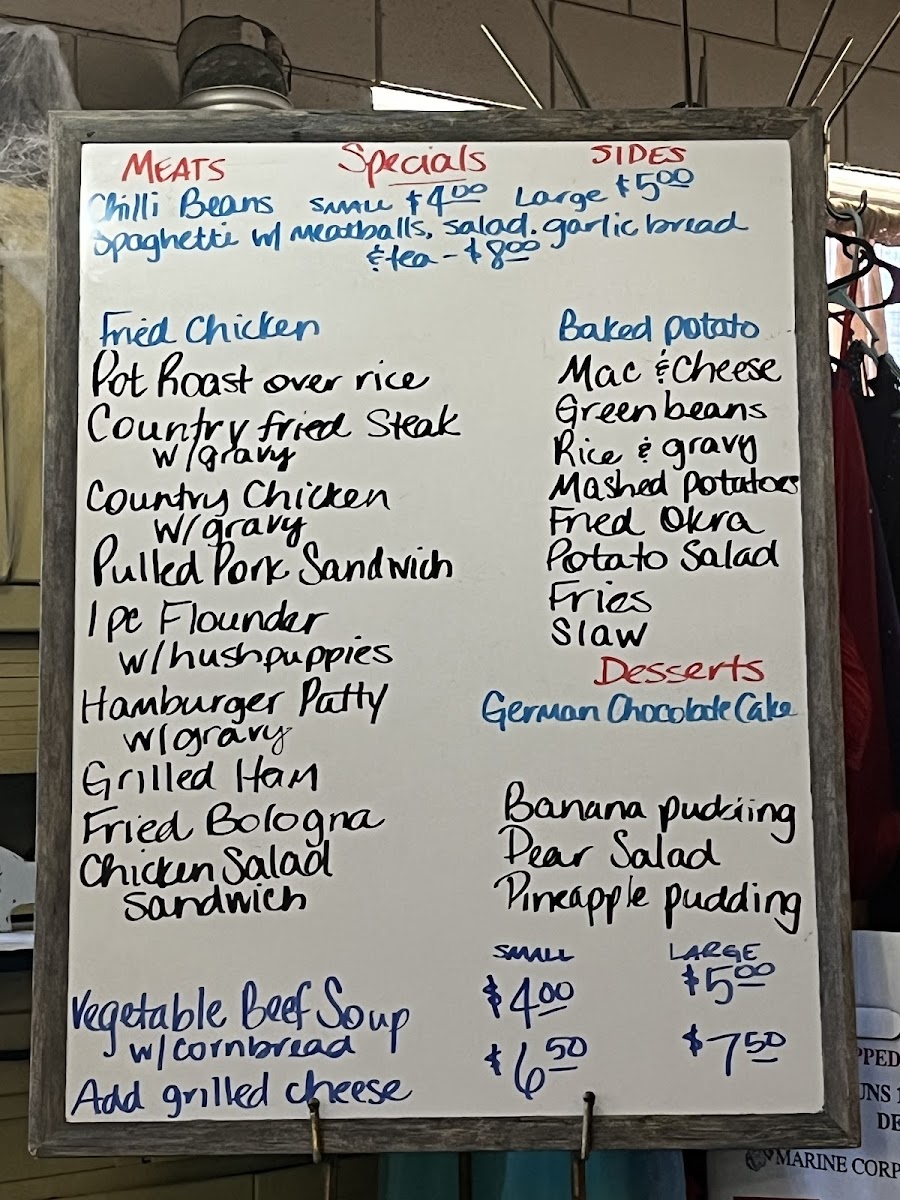 MEATS Specials SIDES
Chilli Beans SMALL $4.00 Large $5.00
Spaghetti w/ meatballs, salad, garlic bread
& tea - $8.00
Fried Chicken
Pot Roast over rice
Country fried Steak
w/gravy
Country Chicken
w/gravy
Pulled Pork Sandwich
1 pc Flounder
w/hushpuppies
Hamburger Patty
w/gravy
Grilled Ham
Fried Bologna
Chicken Salad
Sandwich
Baked potato
Mac & Cheese
Green beans
Rice & gravy
Mashed potatoes
Fried Okra
Potato Salad
Fries
Slaw
Desserts
German Chocolate Cake
Banana pudding
Pear Salad
Pineapple pudding
SMALL LARGE
Vegetable Beef Soup $4.00 $5.00
w/cornbread
Add grilled cheese $6.50 $7.50
PPED
UNS
DE
MARINE CORP